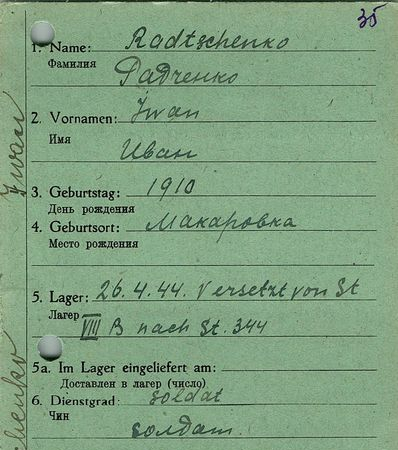 35
1. Name: Radtschenko
Фамилия
Радченко
2. Vornamen: Iwan
Имя
Иван
3. Geburtstag: 1910
День рождения
4. Geburtsort: Макаровка
Место рождения
5. Lager: 26.4.44. Versetzt von St
Лагер
VIII B nach St. 344
5a. Im Lager eingeliefert am:
Доставлен в лагер (число)
6. Dienstgrad: soldat
Чин
солдат
Iwan
henko